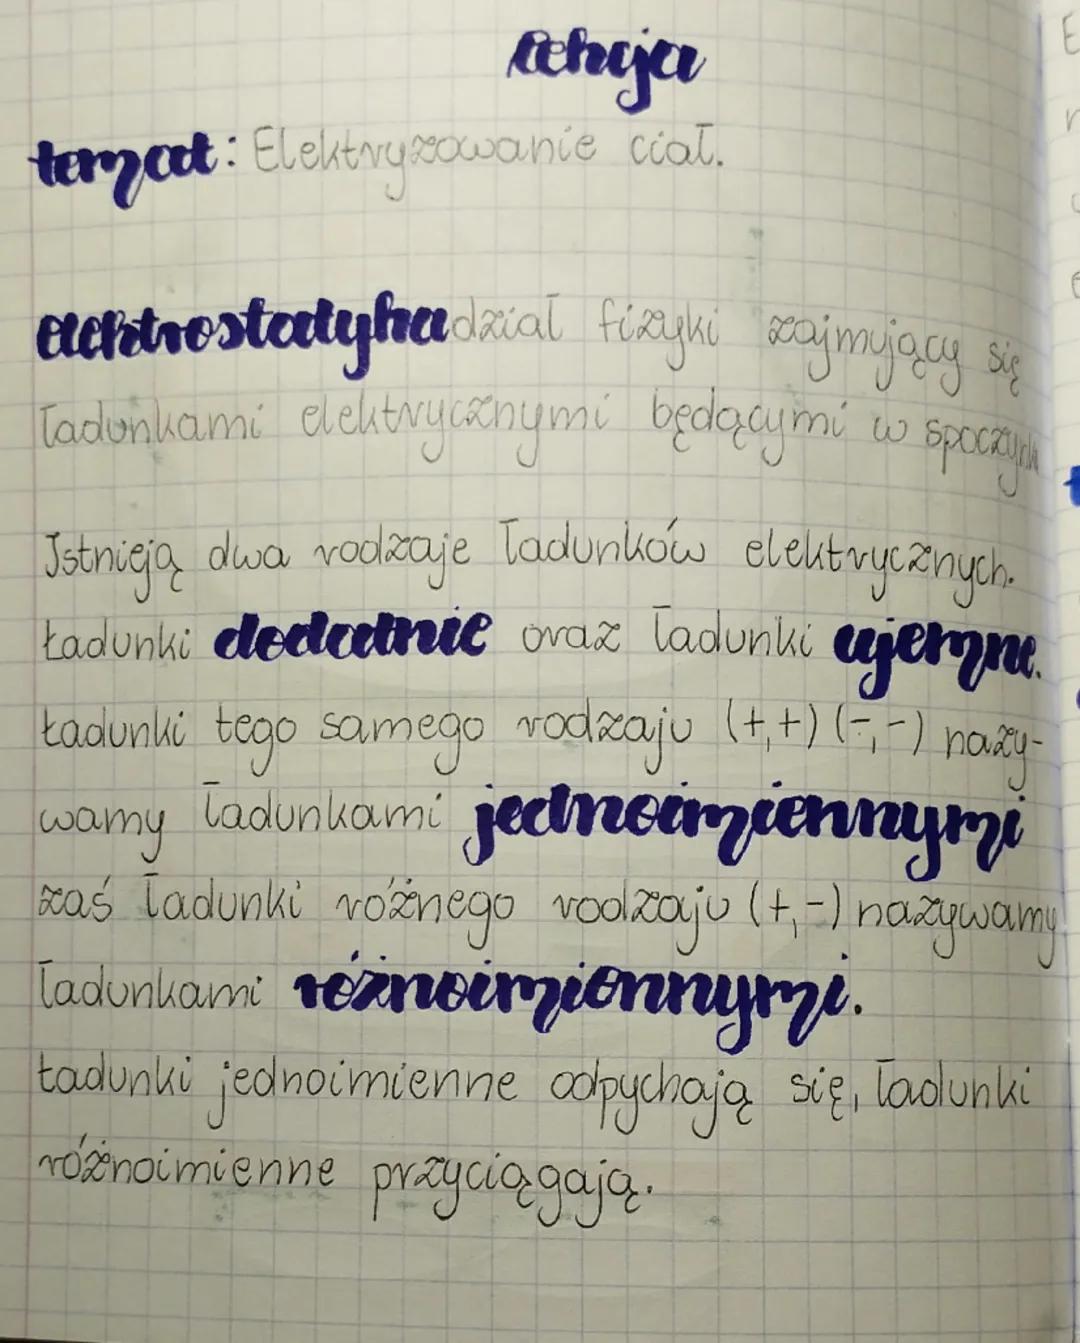 Lekcja
temat: Elektryzowanie ciał.
elektrostatyka dział fizyki zajmujący się
ładunkami elektrycznymi będącymi w spoczynku
Istnieją dwa rodzaje ładunków elektrycznych.
Ładunki dodatnie oraz ładunki ujemne.
Ładunki tego samego rodzaju (+,+) (-,-) nazy-
wamy ładunkami jednoimiennymi
zaś ładunki różnego rodzaju (+,-) nazywamy
ładunkami różnoimiennymi.
Ładunki jednoimienne odpychają się, ładunki
różnoimienne przyciągają.